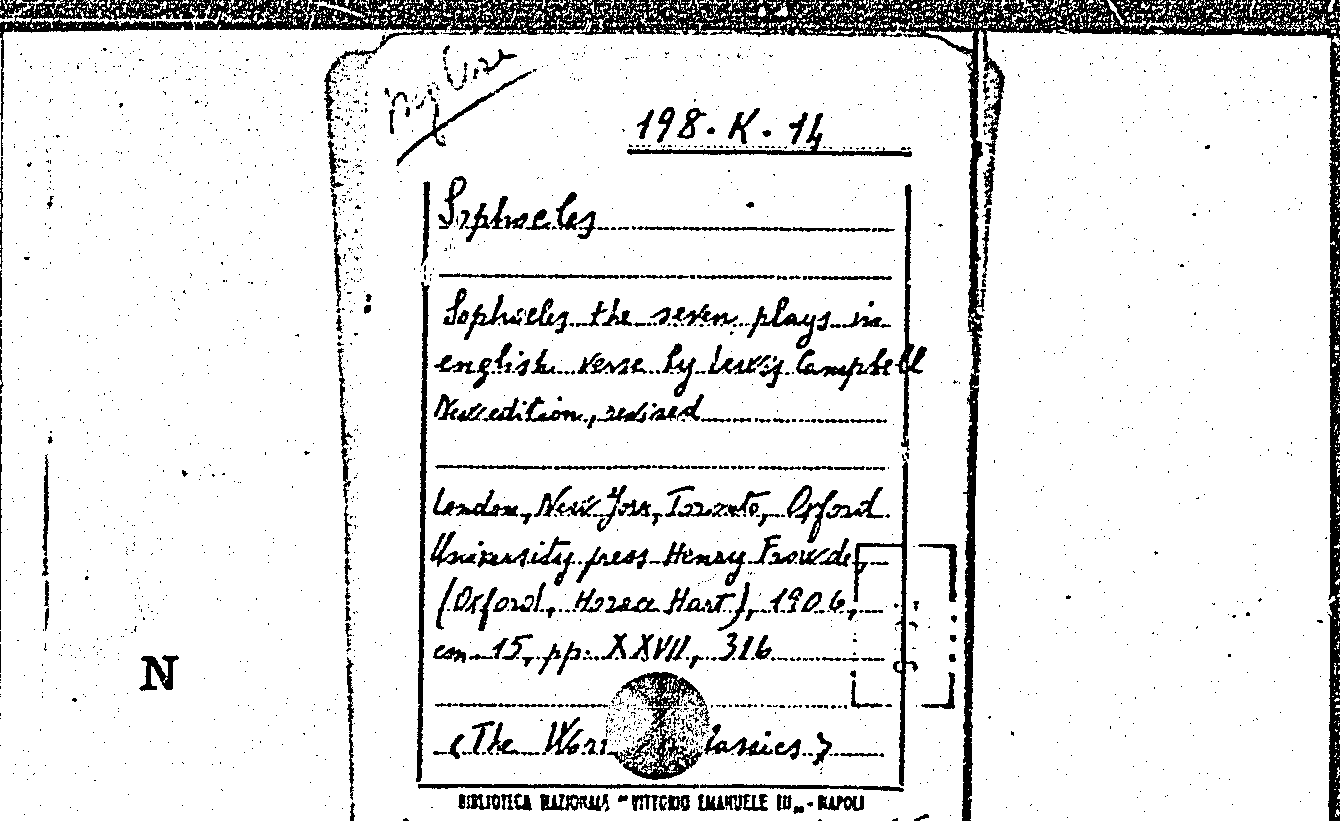 198. K. 14
Sophocles
Sophocles the seven plays in
english verse by Lewis Campbell
New edition, revised
London, New York, Toronto, Oxford
University press Henry Frowde,
(Oxford, Horace Hart), 1906,
cm 15, pp. XXVII, 316
(The Classics)
BIBLIOTECA NAZIONALE "VITTORIO EMANUELE III" - NAPOLI
N